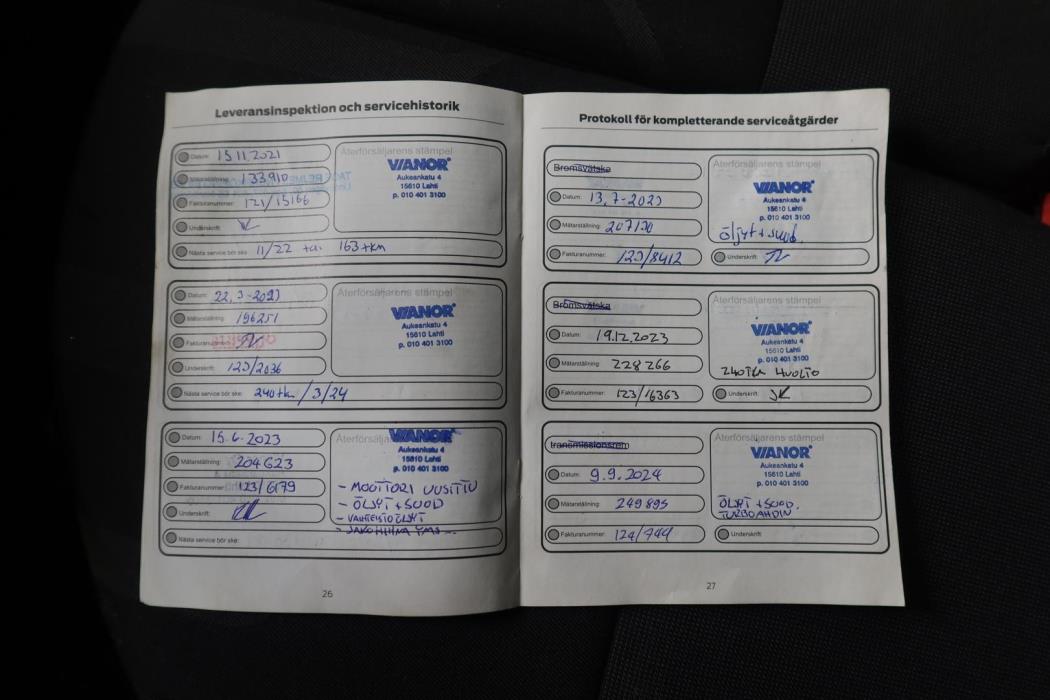 Leveransinspektion och servicehistorik
Datum: 15.11.2021
Mätarställning: 133910
Fakturanummer: 121/15166
Underskrift:
Nästa service bör ske: 11/22 tai 163tkm
Återförsäljarens stämpel
VIANOR
Aukeankatu 4
15610 Lahti
p. 010 401 3100
Datum: 22.3-2023
Mätarställning: 196251
Fakturanummer:
Underskrift: 123/2036
Nästa service bör ske: 240tkm/3/24
Återförsäljarens stämpel
VIANOR
Aukeankatu 4
15610 Lahti
p. 010 401 3100
Datum: 15.6.2023
Mätarställning: 204623
Fakturanummer: 123/6179
Underskrift:
Nästa service bör ske:
Återförsäljarens
VIANOR
Aukeankatu 4
15610 Lahti
p. 010 401 3100
- MOOTTORI UUSITTU
- ÖLJYT + SUOD
- VAIHTEISTOÖLJYT
- JAKOHIHNA YMS...
26
Protokoll för kompletterande serviceåtgärder
Bromsvätska
Datum: 13.7-2023
Mätarställning: 207170
Fakturanummer: 123/8412
Återförsäljarens stämpel
VIANOR
Aukeankatu 4
15610 Lahti
p. 010 401 3100
Öljyt + suod.
Underskrift:
Bromsvätska
Datum: 19.12.2023
Mätarställning: 228266
Fakturanummer: 123/16363
Återförsäljarens stämpel
VIANOR
Aukeankatu 4
15610 Lahti
p. 010 401 3100
240TKM HUOLTO
Underskrift:
transmissionsrem
Datum: 9.9.2024
Mätarställning: 249895
Fakturanummer: 124/
Återförsäljarens stämpel
VIANOR
Aukeankatu 4
15610 Lahti
p. 010 401 3100
ÖLJYT + SUOD.
TURBOAHDIN
Underskrift:
27